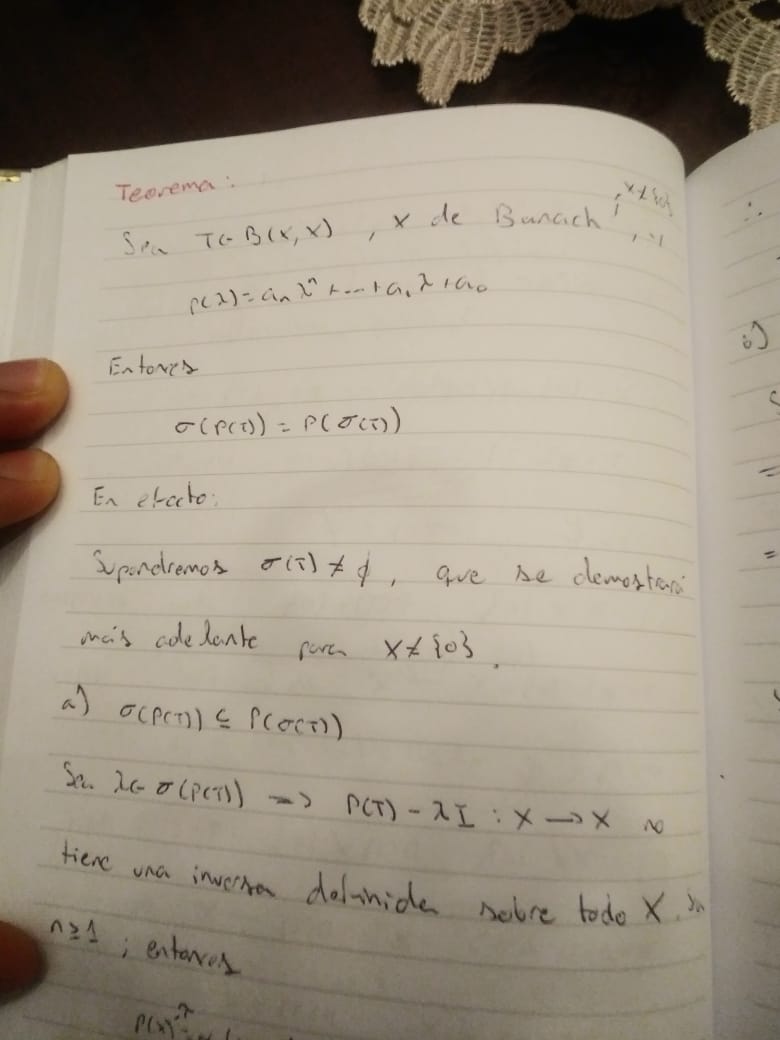 Teorema:
Sea T∈B(X,X), X de Banach, X≠{0}
p(λ)=aₙλⁿ+...+a₁λ+a₀
Entonces
σ(P(T)) = P(σ(T))
En efecto:
Supondremos σ(T) ≠ ϕ, que se demostrará
más adelante para X≠{0}.
a) σ(P(T)) ⊆ P(σ(T))
Sea λ∈σ(P(T)) => P(T) - λI : X → X no
tiene una inversa definida sobre todo X. Sea
n≥1; entonces
P(x)-λ
∴
b)
=
=